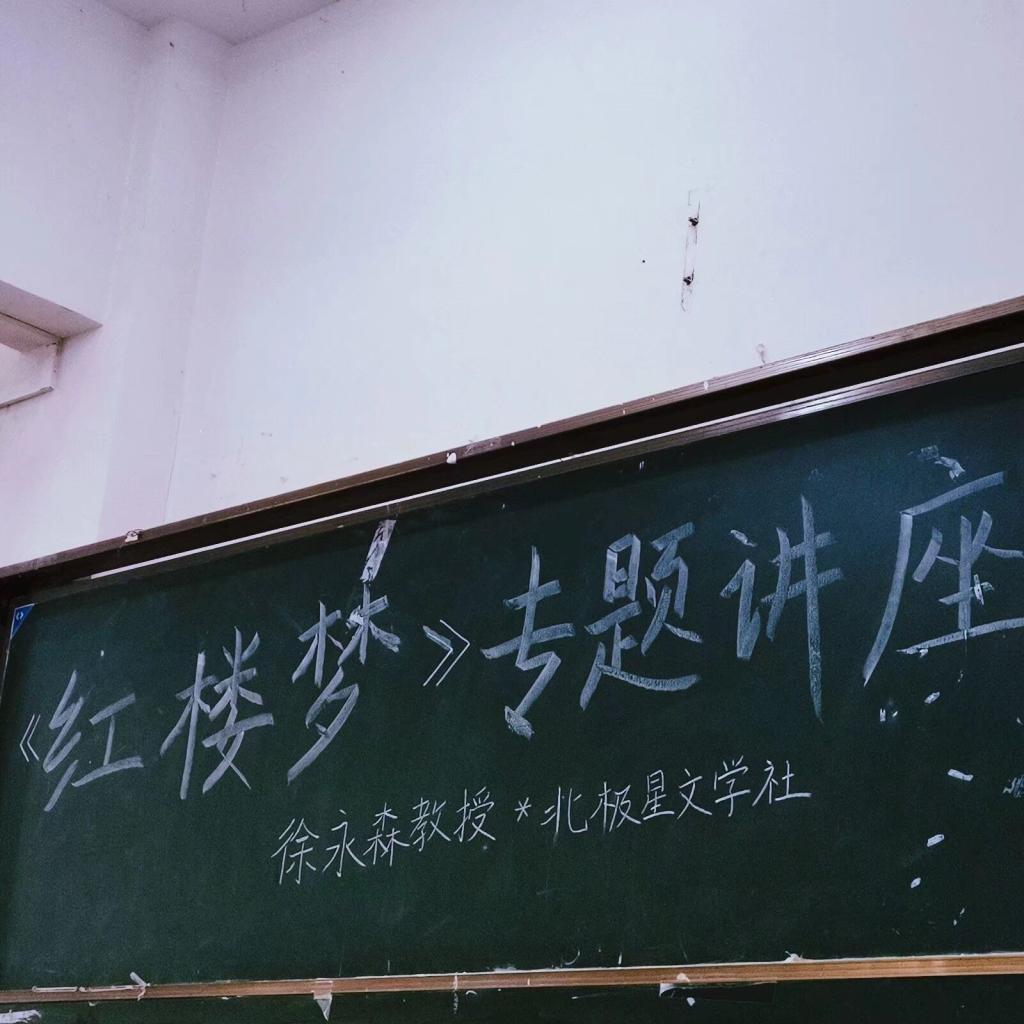 《红楼梦》专题讲座
徐永森教授*北极星文学社